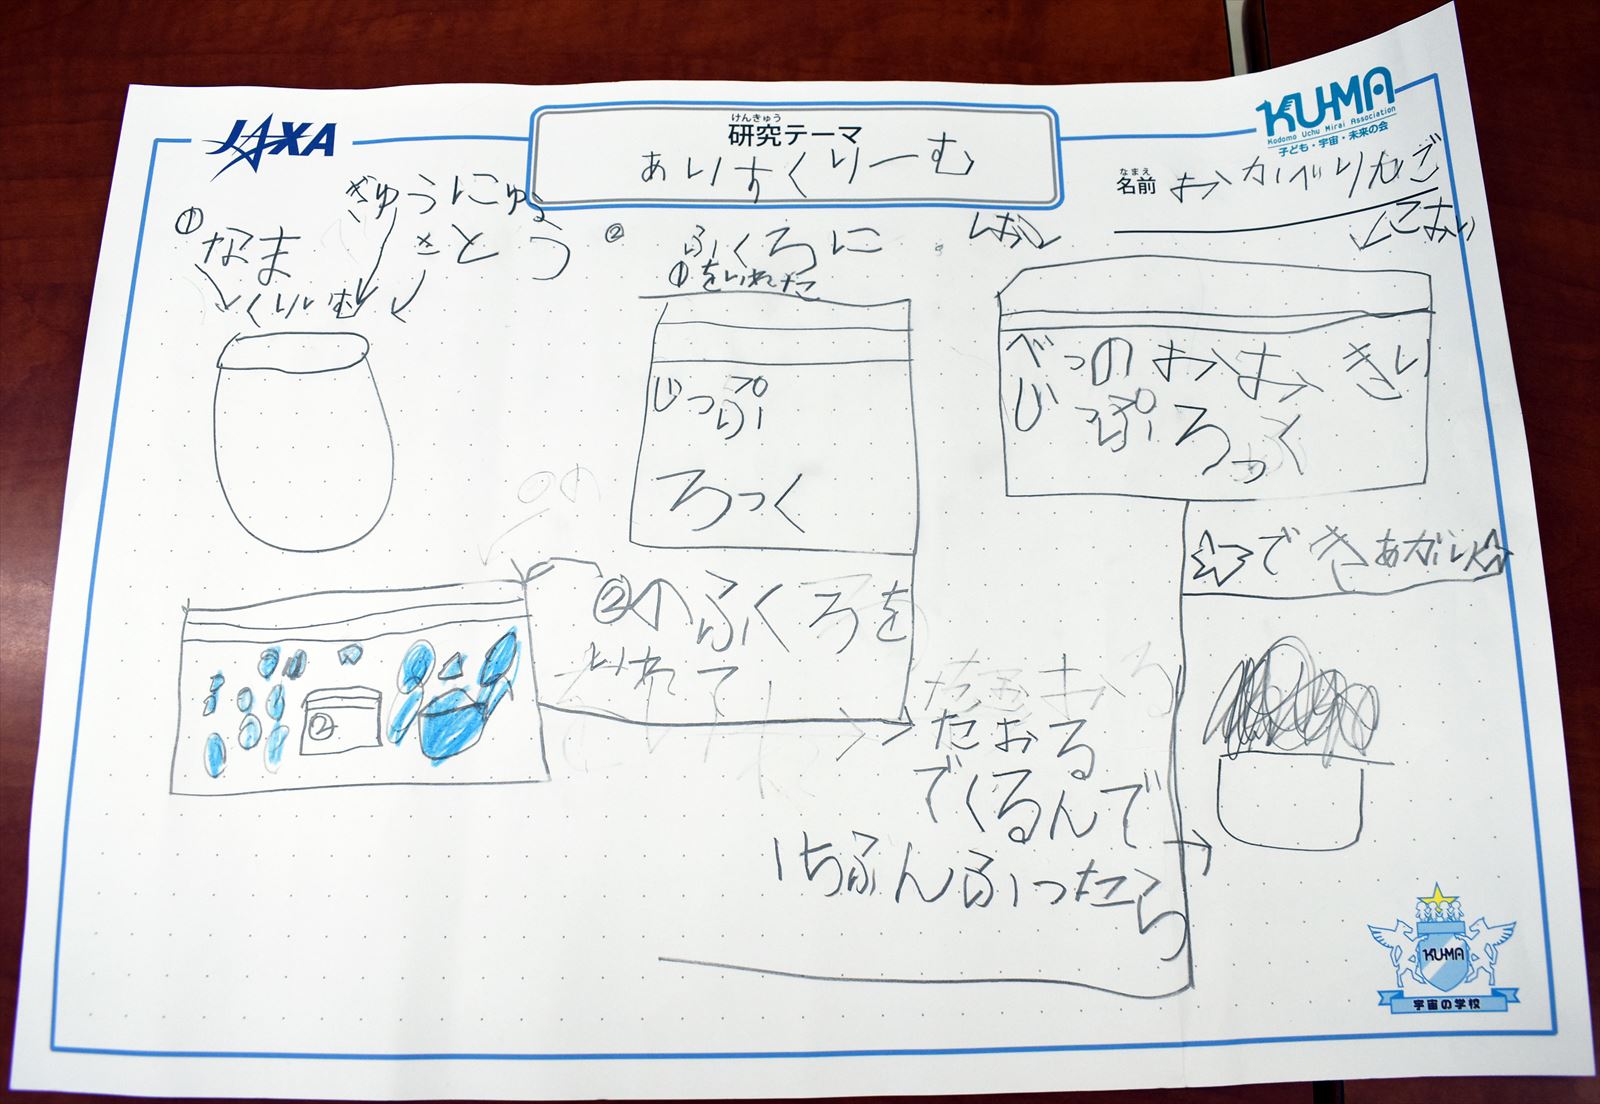 JAXA
けんきゅう
研究テーマ
あいすくりーむ
KU-MA
Kodomo Uchu Mirai Association
子ども・宇宙・未来の会
なまえ
名前
①
ぎゅうにゅう
なま さとう
くりいむ
②
ふくろに
①をいれた
じっぷ
ろっく
しお
こおり
べつのおおきい
じっぷろっく
②のふくろを
いれて
②
たおる
でくるんで
1ちふんふったら
☆できあがり☆
KU-MA
宇宙の学校